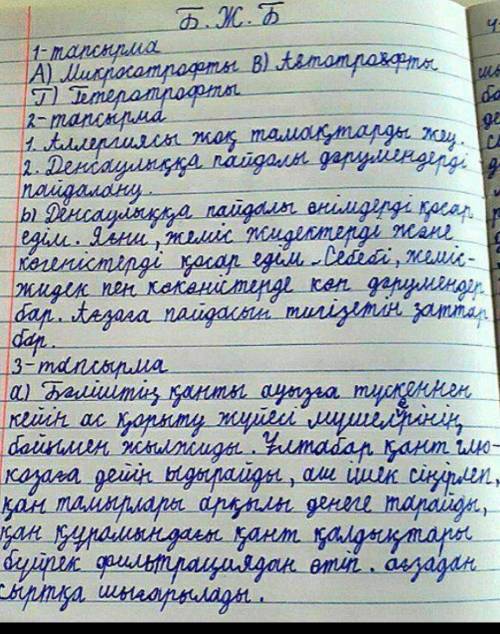 Б.Ж.Б
1-тапсырма
А) Микросотрофты В) Автотрофты
Г) Гетеротрофты
2-тапсырма
1. Аллергиясы жоқ тамақтарды жеу.
2. Денсаулыққа пайдалы дәрумендерді
пайдалану.
b) Денсаулыққа пайдалы өнімдерді қосар
едім. Яғни, жеміс жидектерді және
көгеністерді қосар едім. Себебі, жеміс-
жидек пен көкөністерде көп дәрумендер
бар. Ағзаға пайдасын тигізетін заттар
бар.
3-тапсырма
а) Бәліштің қанты ауызға түскеннен
кейін ас қорыту жүйесі мүшелерінің
бойымен жылжиды. Ұлтабар қант глю-
козаға дейін ыдырайды, аш ішек сіңірлеп,
қан тамырлары арқылы денеге тарайды,
қан құрамындағы қант қалдықтары
бүйрек фильтрациядан өтіп. ағзадан
сыртқа шығарылады.